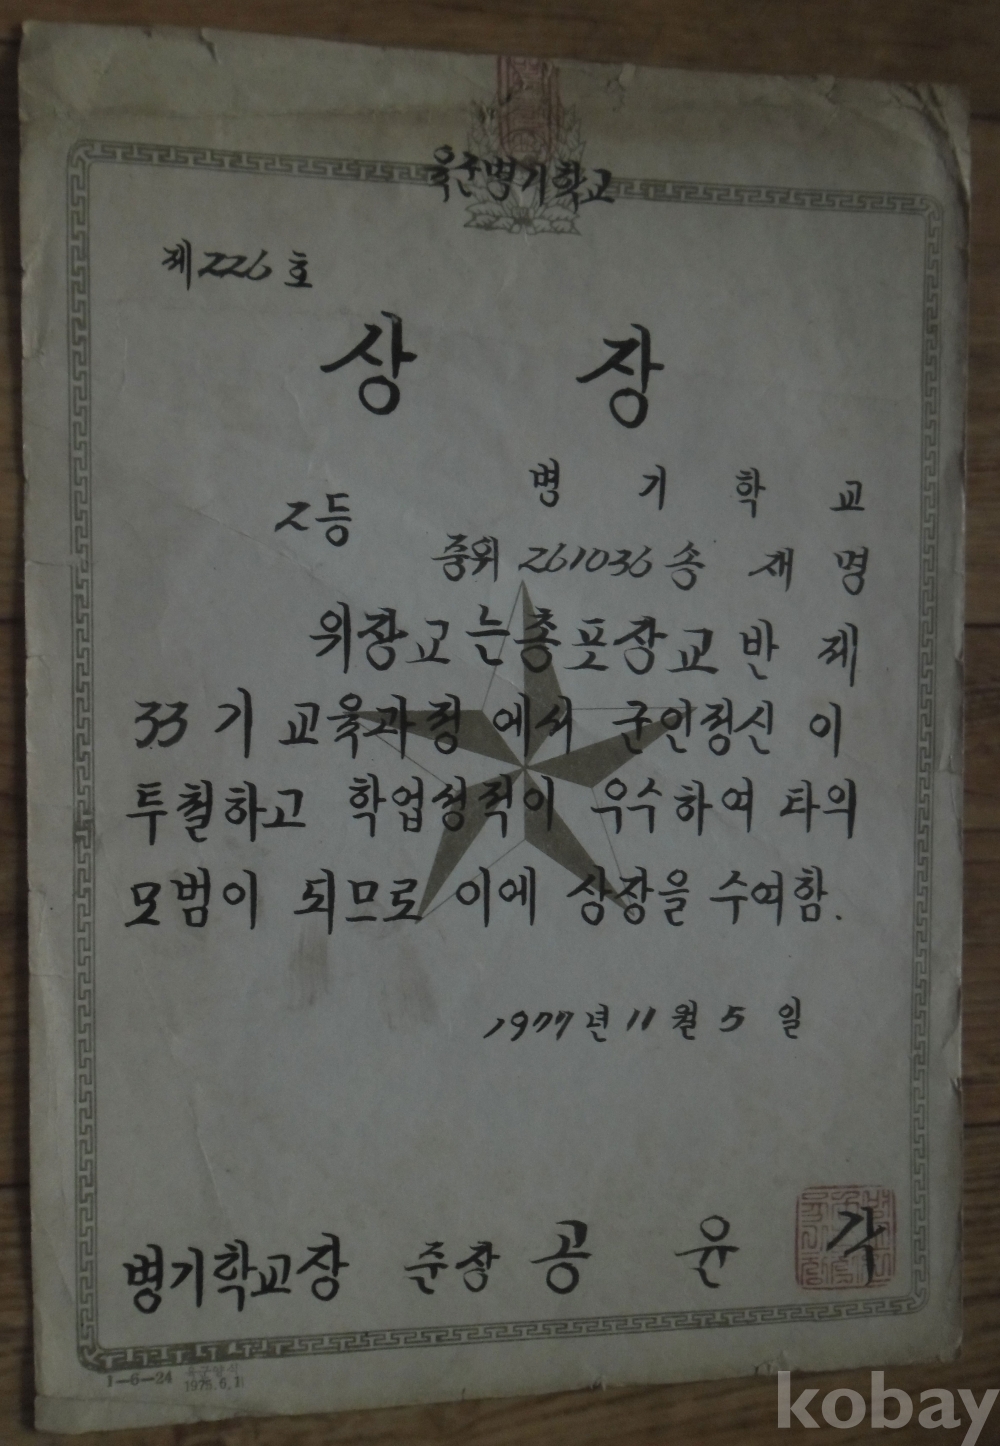 육군병기학교
제226호
상 장
병 기 학 교
2등
중위 261036 송 재 명
위장교는 총포장교반 제
33 기 교육과정 에서 군인정신 이
투철하고 학업성적이 우수하여 타의
모범이 되므로 이에 상장을 수여함.
1977년 11월 5일
병기학교장 준장 공 윤 각
1-6-24 육군양식
1975.6.1
kobay